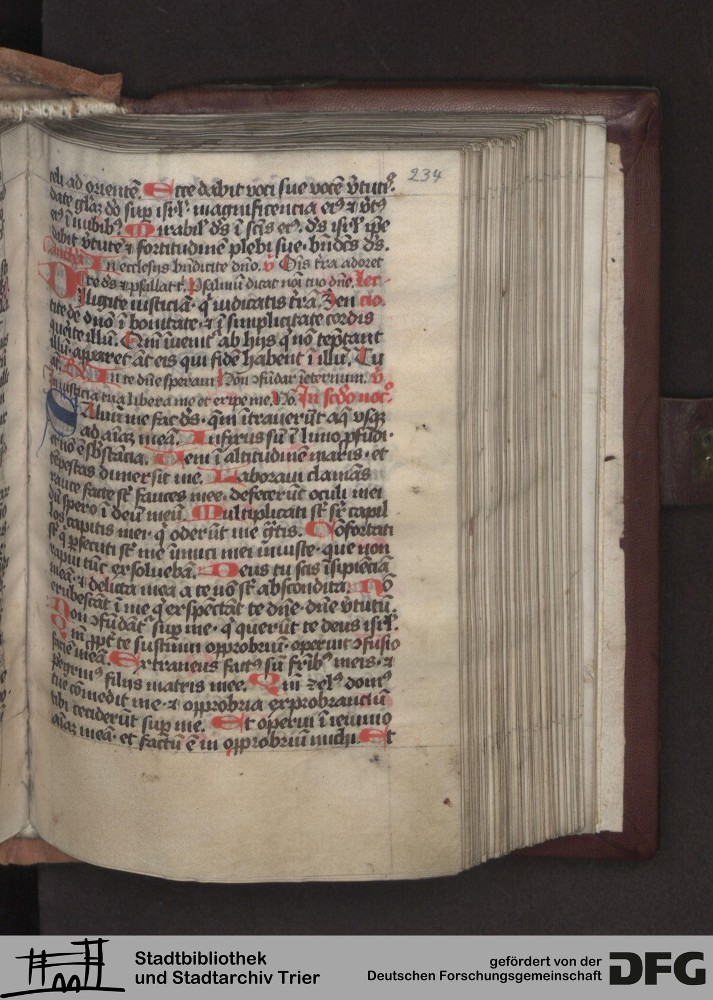 234
celi ad orientē. Ecce dabit voci sue vocē v̄tutꝰ.
date gl̄az dō sup isrl̓. magnificencia eiꝰ ⁊ v̄tꝰ
eiꝰ ī nubibꝰ. Mirabil̓ dꝰs ī scīs eiꝰ. dꝰs isrl̓ ip̄e
dabit v̄tutē ⁊ fortitudinē plebi sue. bn̄dcs dꝰs.
In ecclesijs bn̄dicite dn̄o. v̄ Oīs t̄ra adoret
te dꝰs ⁊ psallat t̓. Psalmū dicat noī tuo dn̄e. Lec-
Diligite iusticiā. q̓ iudicatis t̄rā. Sen cio.
tite de dn̄o ī bonitate. ⁊ ī simplicitate cordis
querite illū. Qm̄ īuenit̓ ab hijs q̓ nō tēptant
illū. apparet āt eis qui fidē habent ī illū. Tu
In te dn̄e speraui Non ꝯfūdar īeternum. v̄
In iusticia tua libera me et eripe me. In scd̄o noc̓.
Saluū me fac dꝰs. qm̄ ītrauerūt aq̄ vsqꝫ
ad aīaꝫ meā. Infixus sū ī limo ꝓfūdi.
et nō ē sbstācia. Veni ī altitudinē maris. et
tēpestas dimersit me. Laboraui clamās
rauce facte sт̄ fauces mee. defecerūt oculi mei
dū spero ī deū meū. Multiplicati sт̄ sr̄ capil
los capitis mei. q̓ oderūt me gr̄tis. Cōfortati
sт̄ q̓ ꝑsecuti sт̄ me īimici mei iniuste. que non
rapui tūc exsoluebā. Deus tu scis īsipienciā
meā. ⁊ delicta mea a te nō sт̄ abscondita. Nō
erubescāt ī me q̓ exspectāt te dn̄e. dn̄e v̄tutū.
Non ꝯfūdāt̓ sup me. q̓ querūt te deus isrl̓.
Qm̄ ꝓpt̓ te sustinui opprobriū. operuit ꝯfusio
faciē meā. Extraneus factꝰ sū fr̄ibꝰ meis. ⁊
ꝑegrinꝰ filijs matris mee. Qm̄ zelꝰ domꝰ
tue comedit me. ⁊ opprobria exprobranciū
tibi ceciderūt sup me. Et operui ī ieiunio
aīaꝫ meā. et factū ē in opprobriū michi. Et
Stadtbibliothek
und Stadtarchiv Trier
gefördert von der
Deutschen Forschungsgemeinschaft
DFG